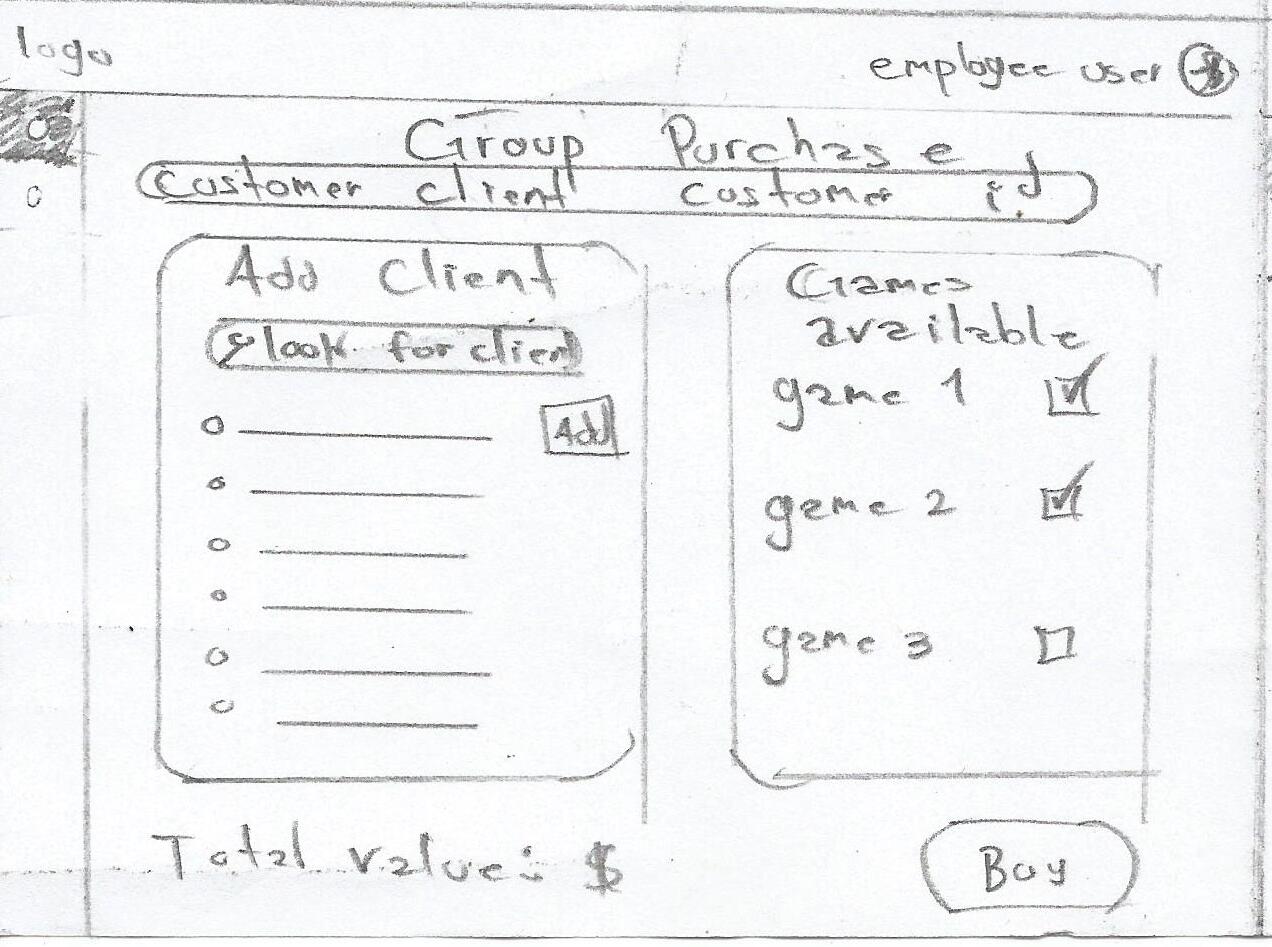 logo
employee user
Group Purchase
Customer client customer id
Add Client
look for client
Add
Games
available
game 1
game 2
game 3
Total value: $
Buy